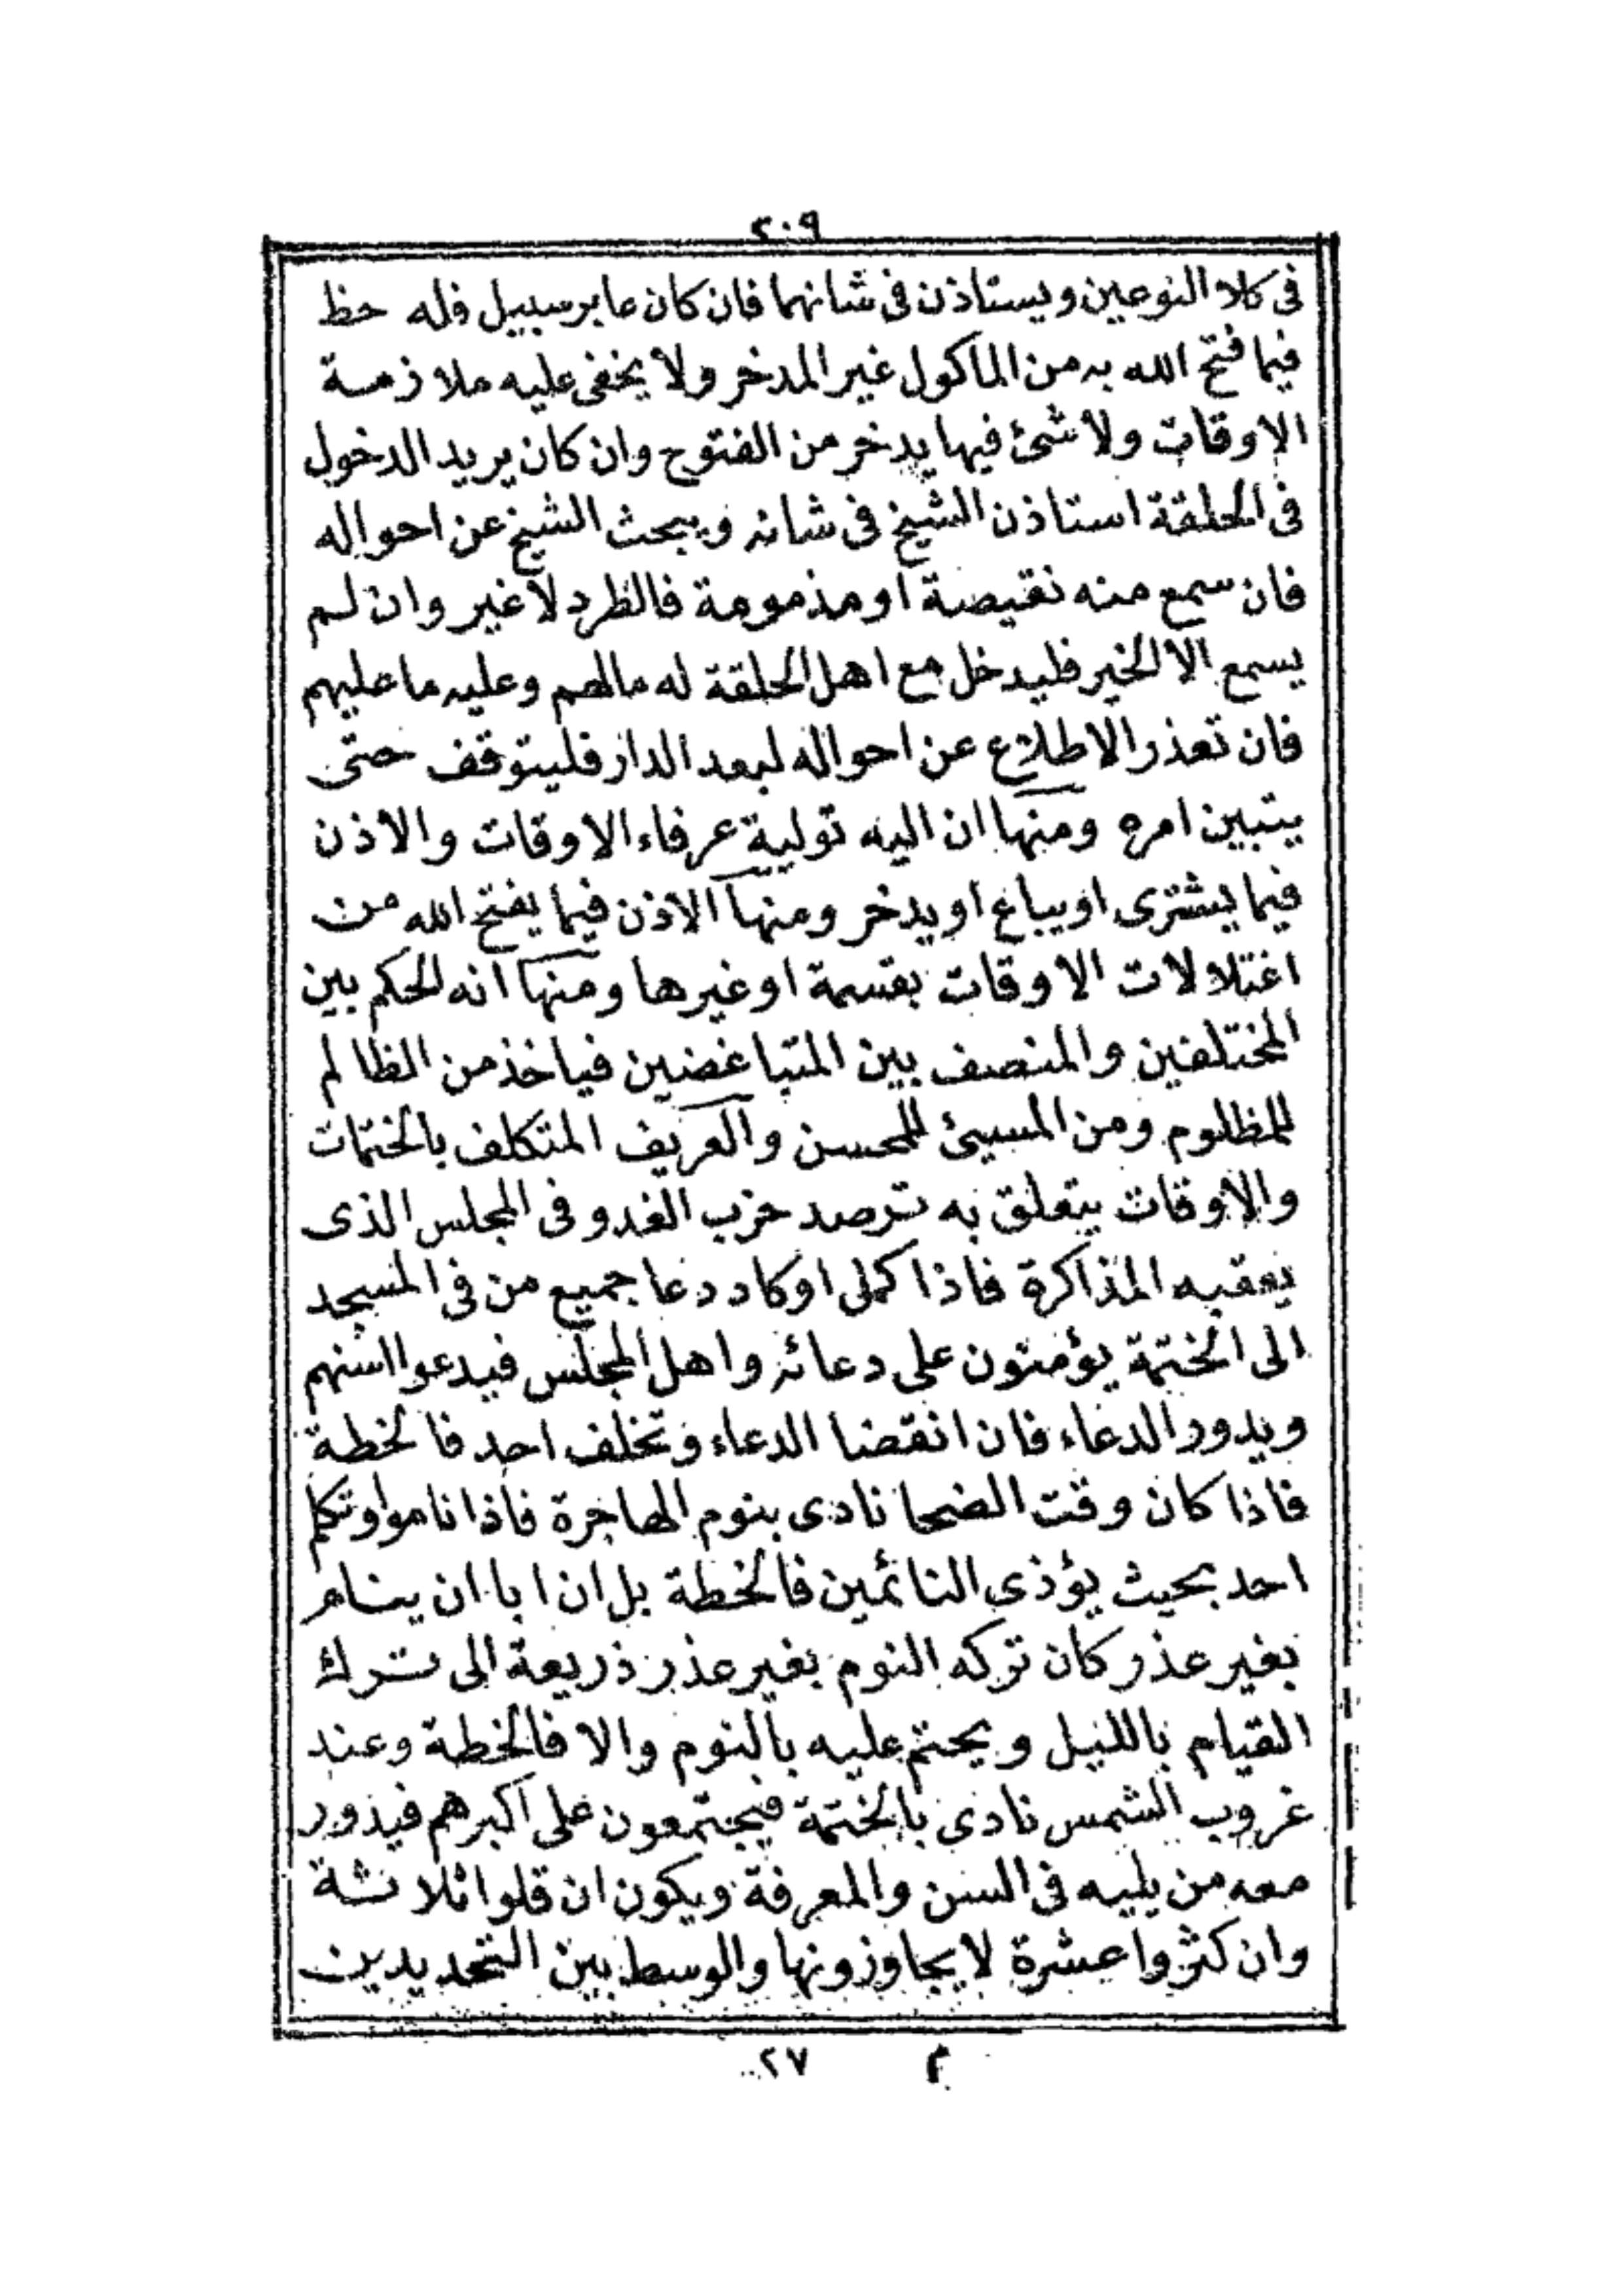 ٢٠٩
فى كلا النوعين ويستاذن فى شانهما فان كان عابر سبيل فله حظ
فيما فتح الله به من الماكول غير المدخر ولا يخفى عليه ملازمة
الاوقات ولا شئ فيها يدخر من الفتوح وان كان يريد الدخول
فى الحلقة استاذن الشيخ فى شانه ويبحث الشيخ عن احواله
فان سمع منه نقيصة او مذمومة فالطرد لا غير وان لم
يسمع الا الخير فليدخل مع اهل الحلقة له مالهم وعليه ما عليهم
فان تعذر الاطلاع عن احواله لبعد الدار فليتوقف حتى
يتبين امره ومنها ان اليه تولية عرفاء الاوقات والاذن
فيما يشترى او يباع او يدخر ومنها الاذن فيما يفتح الله من
اغتلالات الاوقات بقسمة او غيرها ومنها انه الحكم بين
المختلفين والمنصف بين المتباغضين فياخذ من الظالم
للمظلوم ومن المسيئ للمحسن والعريف المتكلف بالختمات
والاوقات يتعلق به ترصد حزب الغدو فى المجلس الذى
يعقبه المذاكرة فاذا كمل او كاد دعا جميع من فى المسجد
الى الختمة يؤمنون على دعائه واهل المجلس فيدعوا اسنهم
ويدور الدعاء فان انقضا الدعاء وتخلف احد فالخطة
فاذا كان وقت الضحا نادى بنوم الهاجرة فاذا ناموا وتكلم
احد بحيث يؤذى النائمين فالخطة بل ان ابا ان ينام
بغير عذر كان تركه النوم بغير عذر ذريعة الى ترك
القيام بالليل ويحتم عليه بالنوم والا فالخطة وعند
غروب الشمس نادى بالختمة فيجتمعون على اكبرهم فيدور
معه من يليه فى السن والمعرفة ويكون ان قلوا ثلاثة
وان كثروا عشرة لا يجاوزونها والوسط بين التحديدين
م ٢٧